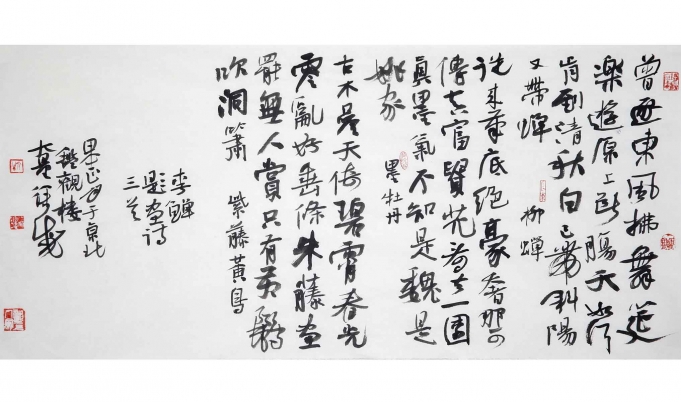 曾逐東風拂舞筵
樂遊原上斷腸天如何
肯到清秋日已帶斜陽
又帶蟬 柳蟬
洗來筆底絕豪奢那可
傳 富貴花 一團
真墨氣不知是魏是
姚家 墨牡丹
古木參天倚碧霄春光
零亂好垂條朱藤畫
罷無人賞只有黃鸝
吹洞簫 紫藤黃鳥
李鱓
題畫詩
三首
於京北
觀樓